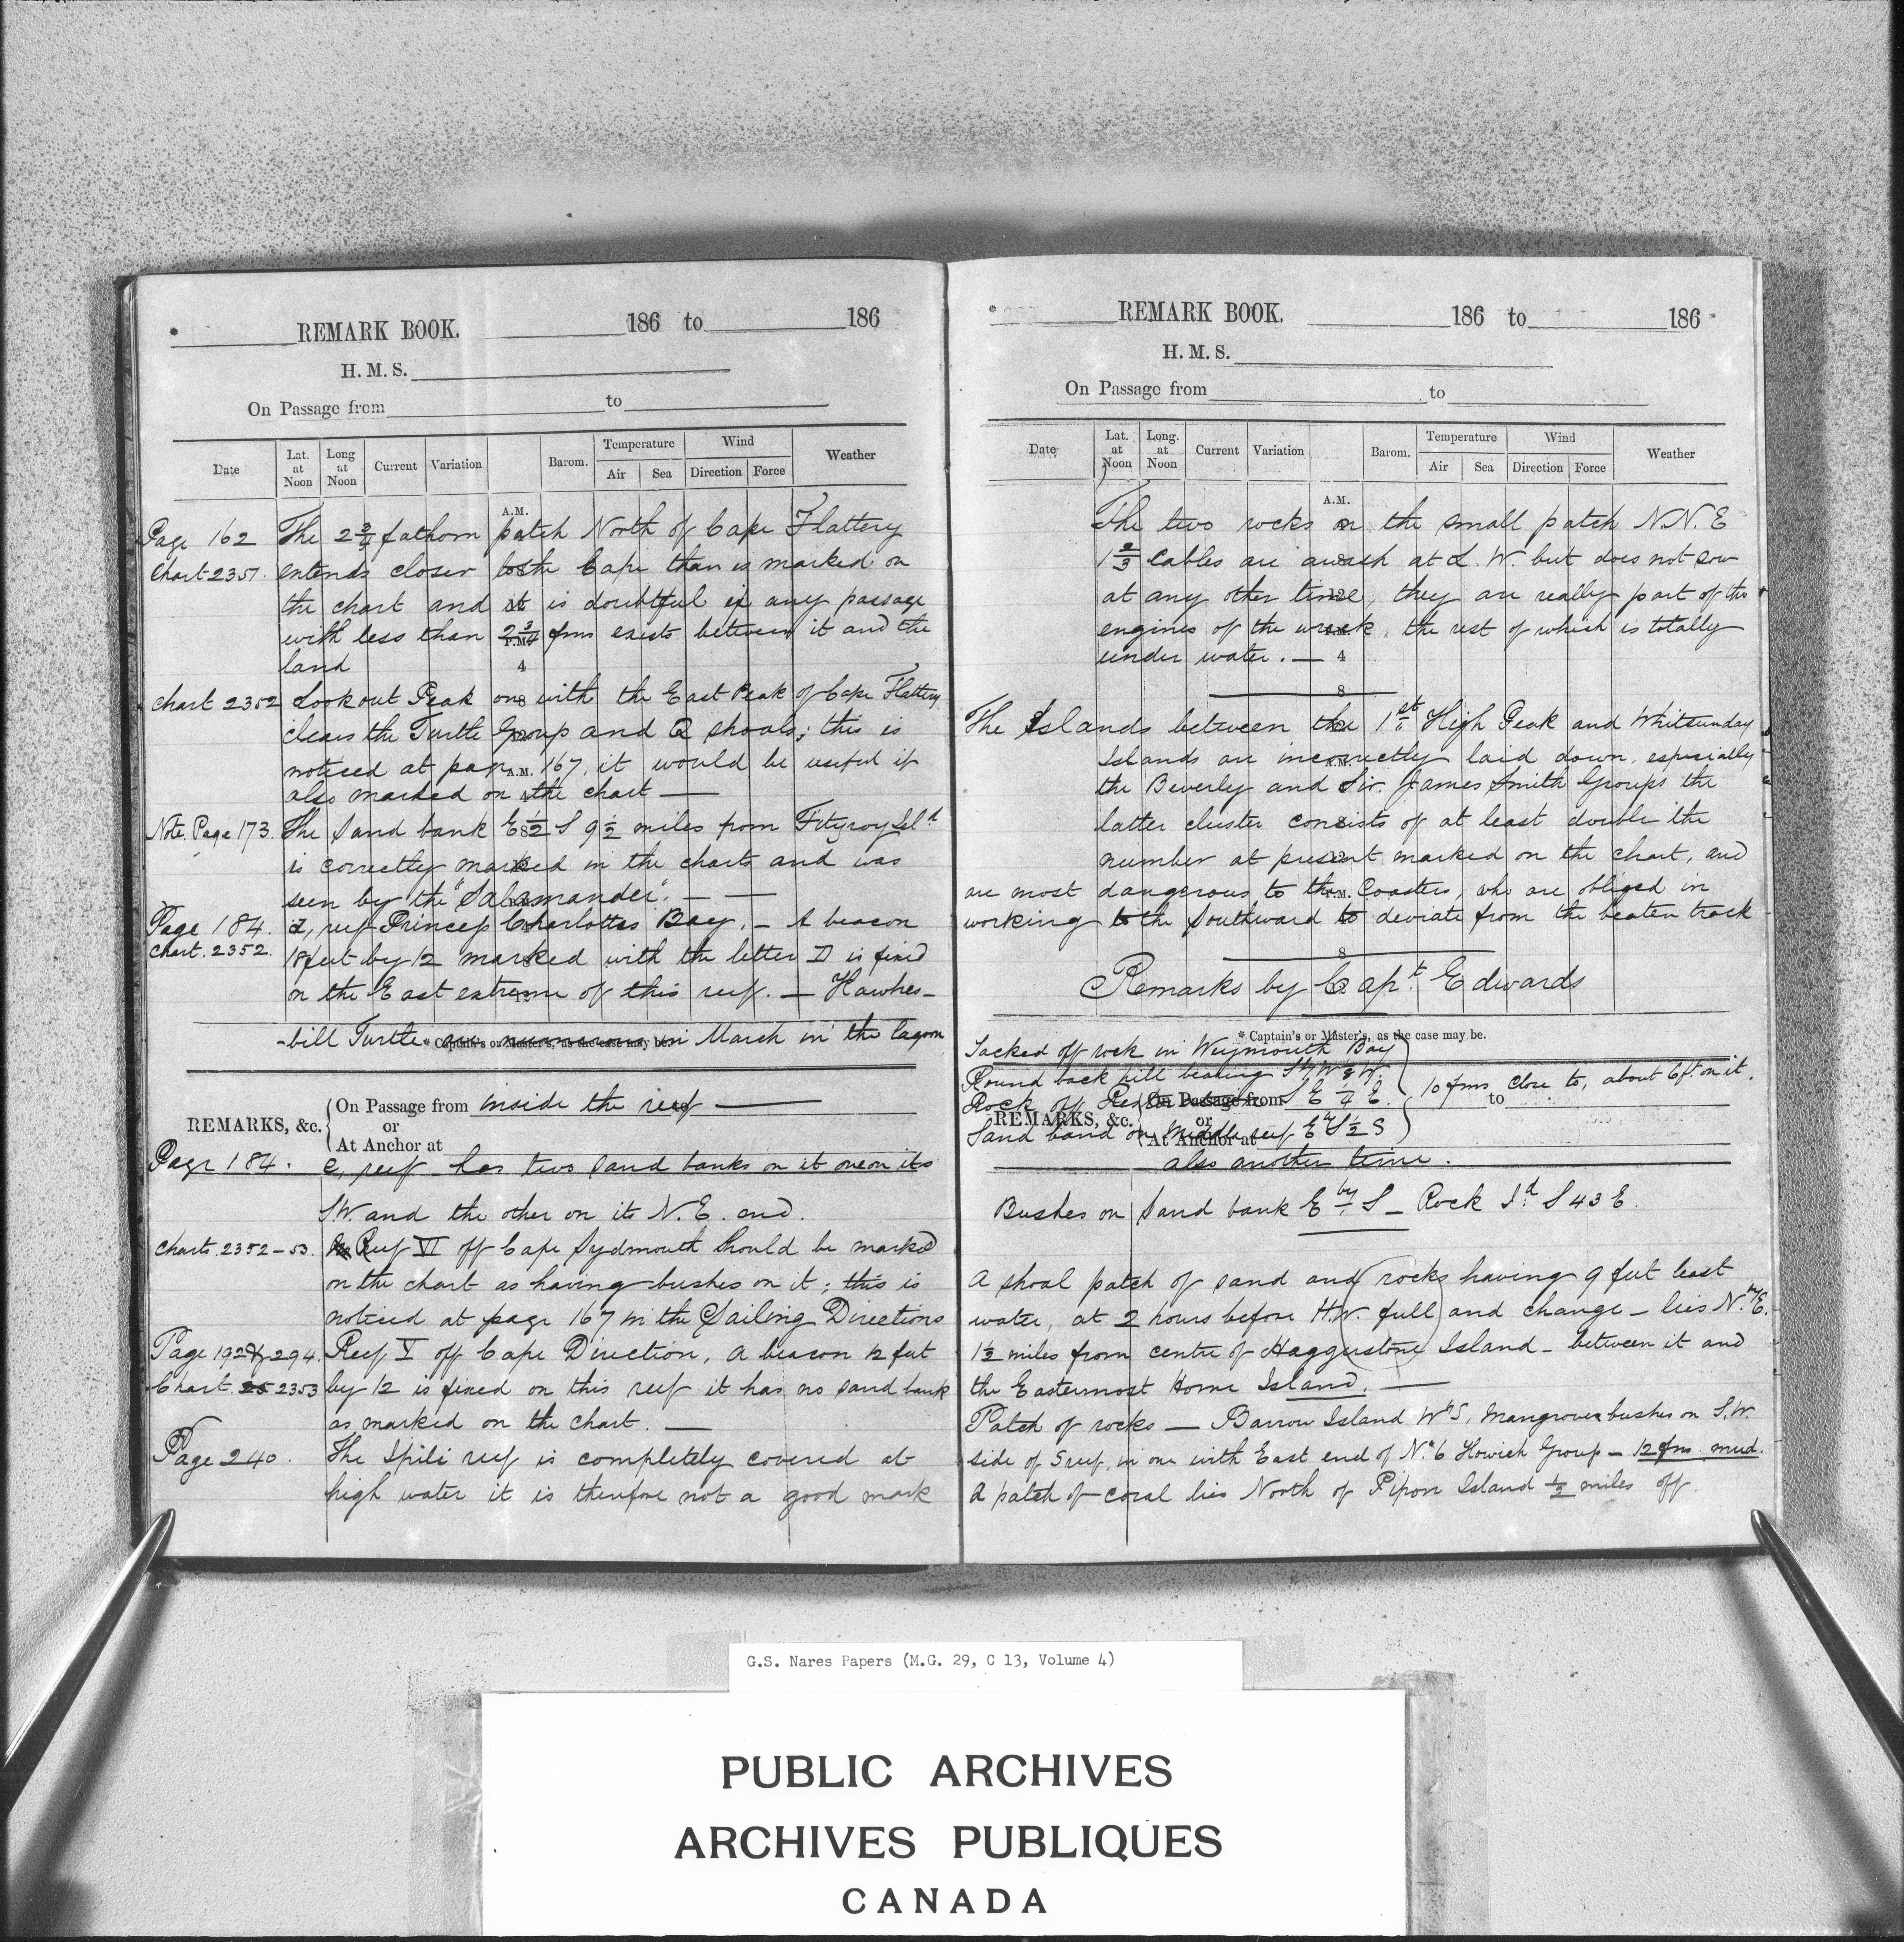 REMARK BOOK. 186 to 186
H. M. S.
On Passage from to
Date Lat. at Noon Long at Noon Current Variation Barom. Temperature Air Sea Wind Direction Force Weather
A.M.
Page 162 The 2 3/4 fathom patch North of Cape Flattery
Chart 2351. extends closer to the Cape than is marked on
the chart and it is doubtful if any passage
with less than 2 3/4 fms exists between it and the
land
chart 2352 Lookout Peak one with the East Peak of Cape Flattery
clears the Turtle Group and Q shoals; this is
noticed at page 167, it would be useful if
also marked on the chart —
Note. Page 173. The Sand bank E 1/2 S 9 1/2 miles from Fitzroy Isld
is correctly marked in the charts and was
seen by the "Salamander". — —
Page 184. d, reef Princess Charlottes Bay. – A beacon
Chart. 2352. 18 feet by 12 marked with the letter D is fixed
on the East extreme of this reef. — Hawkes-
-bill Turtle are numerous in March in the lagoon
* Captain's or Master's, as the case may be.
REMARKS, &c. On Passage from inside the reef —
or
At Anchor at
Page 184. e, reef has two sand banks on it one on its
SW. and the other on its N.E. end.
Charts. 2352-53. Reef VI off Cape Sydmouth should be marked
on the chart as having bushes on it; this is
noticed at page 167 in the Sailing Directions
Page 192 & 294. Reef I off Cape Direction, A beacon 12 feet
Chart 2353 by 12 is fixed on this reef it has no sand bank
as marked on the chart. —
Page 240. The Spili reef is completely covered at
high water it is therefore not a good mark
REMARK BOOK. 186 to 186
H. M. S.
On Passage from to
Date Lat. at Noon Long. at Noon Current Variation Barom. Temperature Air Sea Wind Direction Force Weather
A.M.
The two rocks on the small patch N.N.E
1 2/3 cables are awash at L.W. but does not sow
at any other time, they are really part of the
engines of the wreck, the rest of which is totally
under water. —
The Islands between the 1st High Peak and Whitsunday
Islands are incorrectly laid down, especially
the Beverly and Sir. James Smith Groups the
latter cluster consists of at least double the
number at present marked on the chart, and
are most dangerous to the Coasters, who are obliged in
working to the Southward to deviate from the beaten track
Remarks by Capt. Edwards
* Captain's or Master's, as the case may be.
Tacked off rock in Weymouth Bay
Round back hill bearing
Rock off S E 1/4 E. 10 fms close to, about 6 ft. on it.
REMARKS, &c. On Passage from to
or
At Anchor at
Sand bank on Middle reef E by S 1/2 S
also another time.
Bushes on Sand bank E by S – Rock Id S 43 E.
A shoal patch of sand and rocks having 9 feet least
water, at 2 hours before H.W. full and change – lies N. by E.
1 1/2 miles from centre of Haggerstone Island – between it and
the Eastermost Home Island. —
Patch of rocks — Barrow Island W by S, Mangrove bushes on S.W.
side of S reef, in one with East end of No. 6 Howick Group – 12 fms mud.
A patch of coral lies North of Pipon Island 1/2 miles off.
G.S. Nares Papers (M.G. 29, C 13, Volume 4)
PUBLIC ARCHIVES
ARCHIVES PUBLIQUES
CANADA